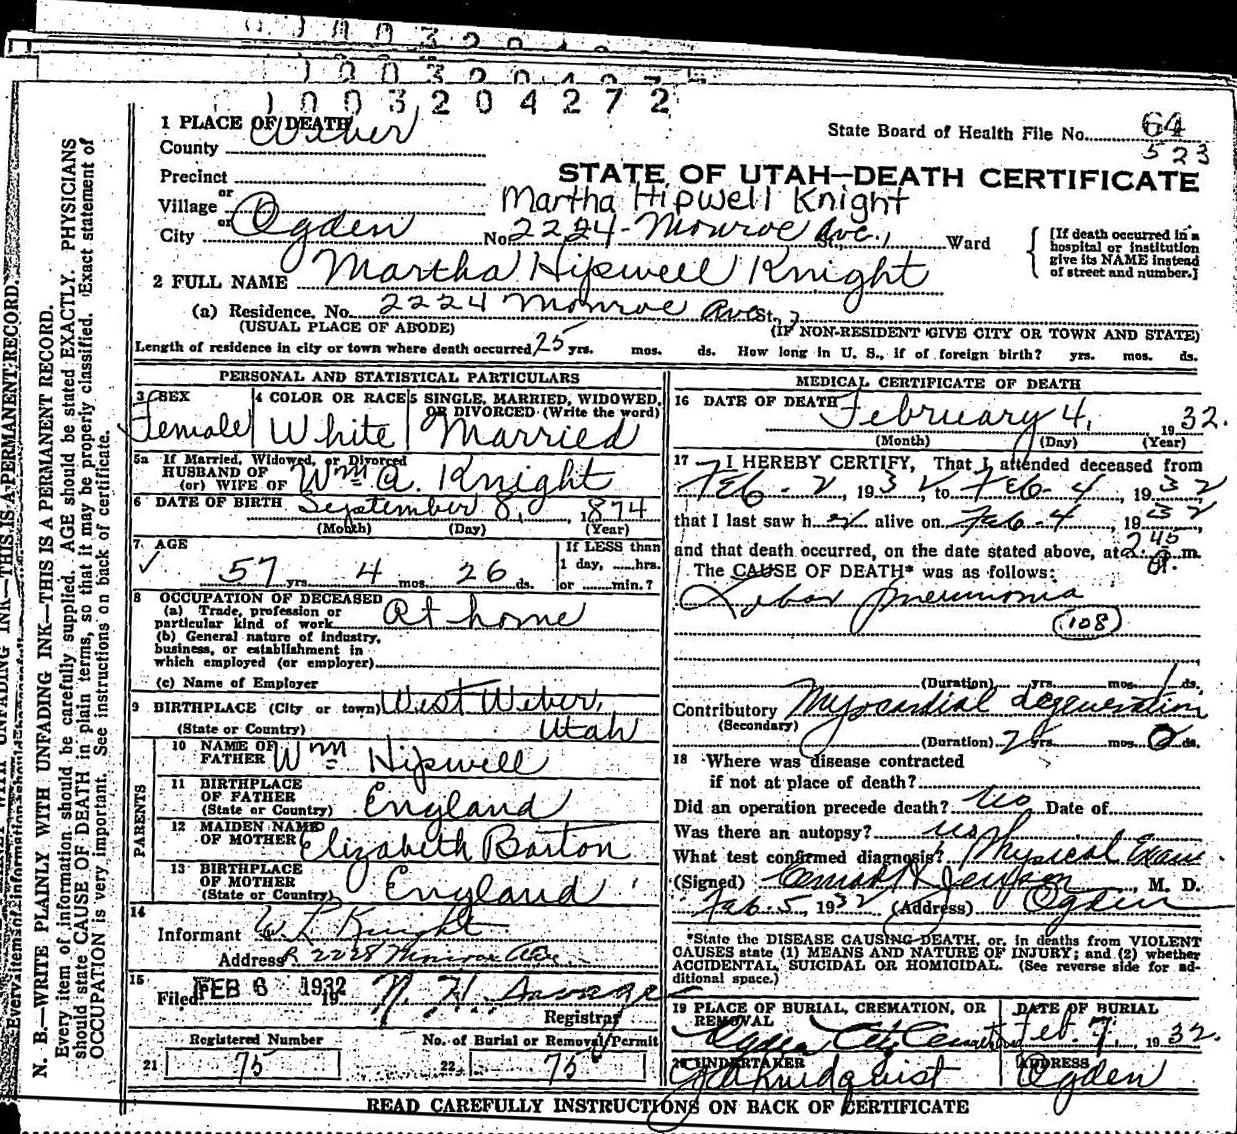 1003204272
1 PLACE OF DEATH
County Weber
State Board of Health File No. 64
523
Precinct
STATE OF UTAH—DEATH CERTIFICATE
or
Village
Martha Hipwell Knight
or
City Ogden No. 2224 Monroe Ave., Ward
[If death occurred in a hospital or institution give its NAME instead of street and number.]
2 FULL NAME Martha Hipwell Knight
(a) Residence. No. 2224 Monroe Ave St.,
(USUAL PLACE OF ABODE) (IF NON-RESIDENT GIVE CITY OR TOWN AND STATE)
Length of residence in city or town where death occurred 25 yrs. mos. ds. How long in U. S., if of foreign birth? yrs. mos. ds.
PERSONAL AND STATISTICAL PARTICULARS
3 SEX
Female
4 COLOR OR RACE
White
5 SINGLE, MARRIED, WIDOWED, OR DIVORCED (Write the word)
Married
5a If Married, Widowed, or Divorced
HUSBAND OF
(or) WIFE OF Wm A. Knight
6 DATE OF BIRTH September 8, 1874
(Month) (Day) (Year)
7. AGE
57 yrs. 4 mos. 26 ds.
If LESS than
1 day, hrs.
or min.?
8 OCCUPATION OF DECEASED
(a) Trade, profession or
particular kind of work At home
(b) General nature of industry,
business, or establishment in
which employed (or employer)
(c) Name of Employer
9 BIRTHPLACE (City or town) West Weber,
(State or Country) Utah
PARENTS
10 NAME OF
FATHER Wm Hipwell
11 BIRTHPLACE
OF FATHER
(State or Country) England
12 MAIDEN NAME
OF MOTHER Elizabeth Barton
13 BIRTHPLACE
OF MOTHER
(State or Country) England
14
Informant Knight
Address
15
Filed FEB 6 1932
19
Registrar
Registered Number
21 75
No. of Burial or Removal Permit
22 75
MEDICAL CERTIFICATE OF DEATH
16 DATE OF DEATH February 4, 1932.
(Month) (Day) (Year)
17 I HEREBY CERTIFY, That I attended deceased from
Feb-2, 1932 to Feb-4, 1932
that I last saw her alive on Feb-4, 1932
and that death occurred, on the date stated above, at 245 m.
The CAUSE OF DEATH* was as follows:
Lobar pneumonia
108
(Duration) yrs. mos. ds.
Contributory Myocardial degeneration
(Secondary)
(Duration) 2 yrs. mos. 0 ds.
18 Where was disease contracted
if not at place of death?
Did an operation precede death? no Date of
Was there an autopsy? no
What test confirmed diagnosis? Physical Exam
(Signed) , M. D.
Feb. 5, 1932 (Address) Ogden
*State the DISEASE CAUSING DEATH, or, in deaths from VIOLENT
CAUSES state (1) MEANS AND NATURE OF INJURY; and (2) whether
ACCIDENTAL, SUICIDAL OR HOMICIDAL. (See reverse side for ad-
ditional space.)
19 PLACE OF BURIAL, CREMATION, OR
REMOVAL
Ogden City
DATE OF BURIAL
Feb. 7, 1932.
20 UNDERTAKER
ADDRESS
Ogden
READ CAREFULLY INSTRUCTIONS ON BACK OF CERTIFICATE
N. B.—WRITE PLAINLY WITH UNFADING INK—THIS IS A PERMANENT RECORD.
Every item of information should be carefully supplied. AGE should be stated EXACTLY. PHYSICIANS
should state CAUSE OF DEATH in plain terms, so that it may be properly classified. Exact statement of
OCCUPATION is very important. See instructions on back of certificate.